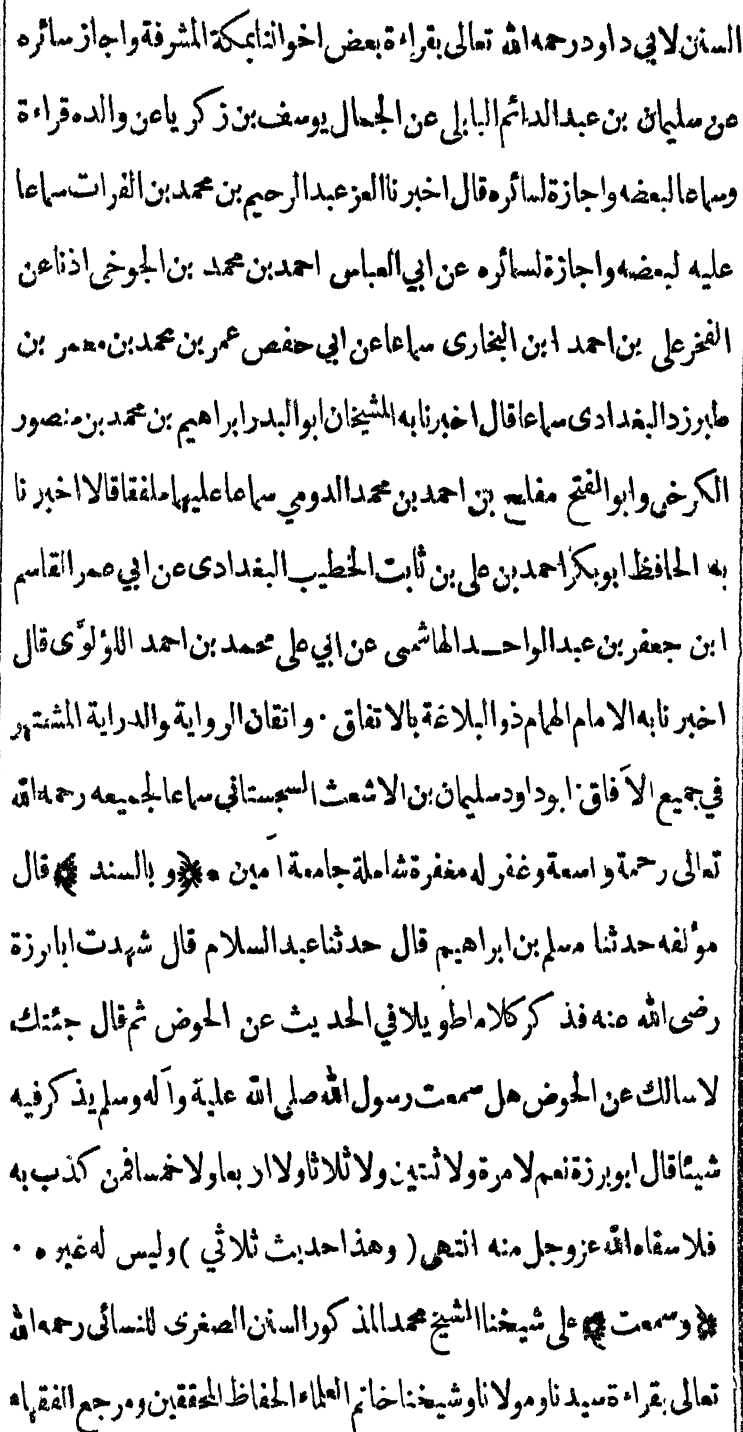 السنن لابي داود رحمه الله تعالى بقراءة بعض اخواننا بمكة المشرفة واجاز سائره
عن سليمان بن عبدالدائم البابلى عن الجمال يوسف بن زكريا عن والده قراءة
وسماعا لبعضه واجازة لسائره قال اخبرنا العز عبدالرحيم بن محمد بن الفرات سماعا
عليه لبعضه واجازة لسائره عن ابي العباس احمد بن محمد بن الجوخى اذنا عن
الفخر على بن احمد ابن البخارى سماعا عن ابي حفص عمر بن محمد بن معمر بن
طبرزد البغدادى سماعا قال اخبرنا به الشيخان ابو البدر ابراهيم بن محمد بن منصور
الكرخى وابو الفتح مفلح بن احمد بن محمد الدومي سماعا عليهما ملفقا قالا اخبرنا
به الحافظ ابوبكر احمد بن على بن ثابت الخطيب البغدادى عن ابي عمر القاسم
ابن جعفر بن عبدالواحد الهاشمى عن ابي على محمد بن احمد اللؤلؤى قال
اخبرنا به الامام الهمام ذو البلاغة بالاتفاق ٠ واتقان الرواية والدراية المشتهر
في جميع الآفاق ابو داود سليمان بن الاشعث السجستاني سماعا لجميعه رحمه الله
تعالى رحمة واسعة وغفر له مغفرة شاملة جامعة آمين ٠ ﴿وبالسند ﴾ قال
مؤلفه حدثنا مسلم بن ابراهيم قال حدثنا عبدالسلام قال شهدت ابا برزة
رضى الله عنه فذكر كلاما طويلا في الحديث عن الحوض ثم قال جئتك
لاسالك عن الحوض هل سمعت رسول الله صلى الله علية وآله وسلم يذكر فيه
شيئا قال ابوبرزة نعم لا مرة ولا ثنتين ولا ثلاثا ولا اربعا ولا خمسا فمن كذب به
فلا سقاه الله عز وجل منه انتهى ( وهذا حديث ثلاثي ) وليس له غيره ٠
﴿ وسمعت ﴾ على شيخنا الشيخ محمد المذكور السنن الصغرى للنسائى رحمه الله
تعالى بقراءة سيدنا ومولانا وشيخنا خاتم العلماء الحفاظ المحققين ومرجع الفقهاء